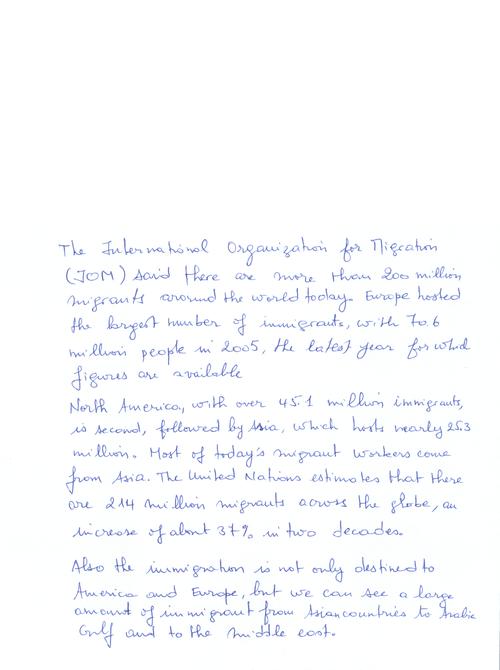 The International Organization for Migration
(IOM) said there are more than 200 million
migrants around the world today. Europe hosted
the largest number of immigrants, with 70.6
million people in 2005, the latest year for which
figures are available
North America, with over 45.1 million immigrants,
is second, followed by Asia, which hosts nearly 25.3
million. Most of today's migrant workers come
from Asia. The United Nations estimates that there
are 214 million migrants across the globe, an
increase of about 37% in two decades.
Also the immigration is not only destined to
America and Europe, but we can see a large
amount of immigrant from Asian countries to Arabic
Gulf and to the middle east.